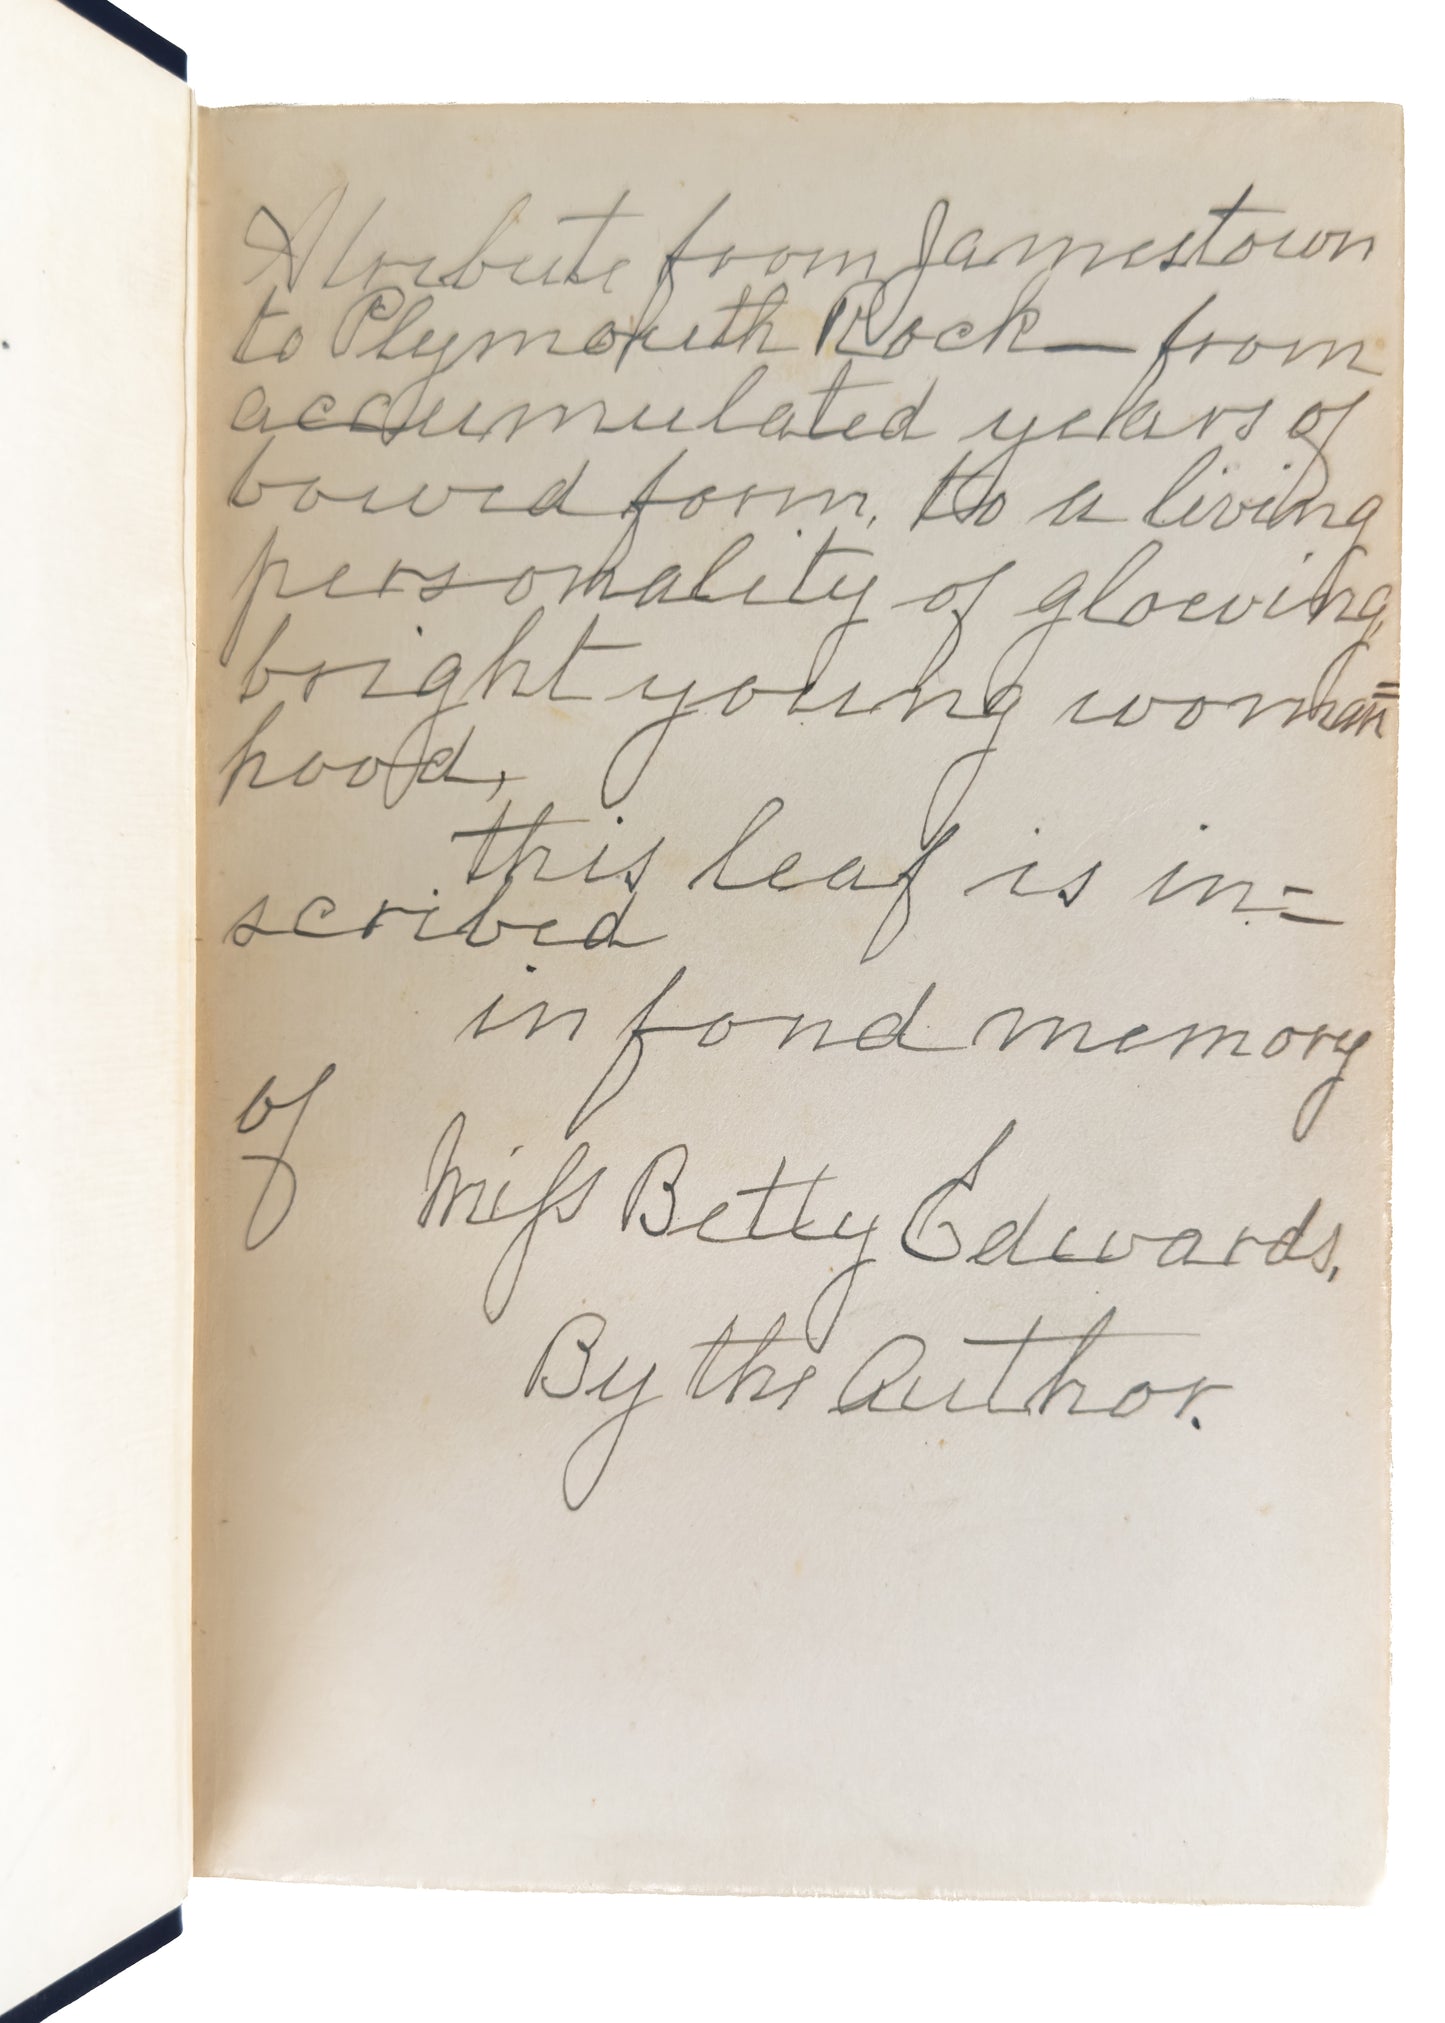 A tribute from Jamestown
to Plymouth Rock — from
accumulated years of
bowed form, to a living
personality of glowing,
bright young woman=
hood,
this leaf is in=
scribed
in fond memory
of
Miſs Betty Edwards,
By the Author.